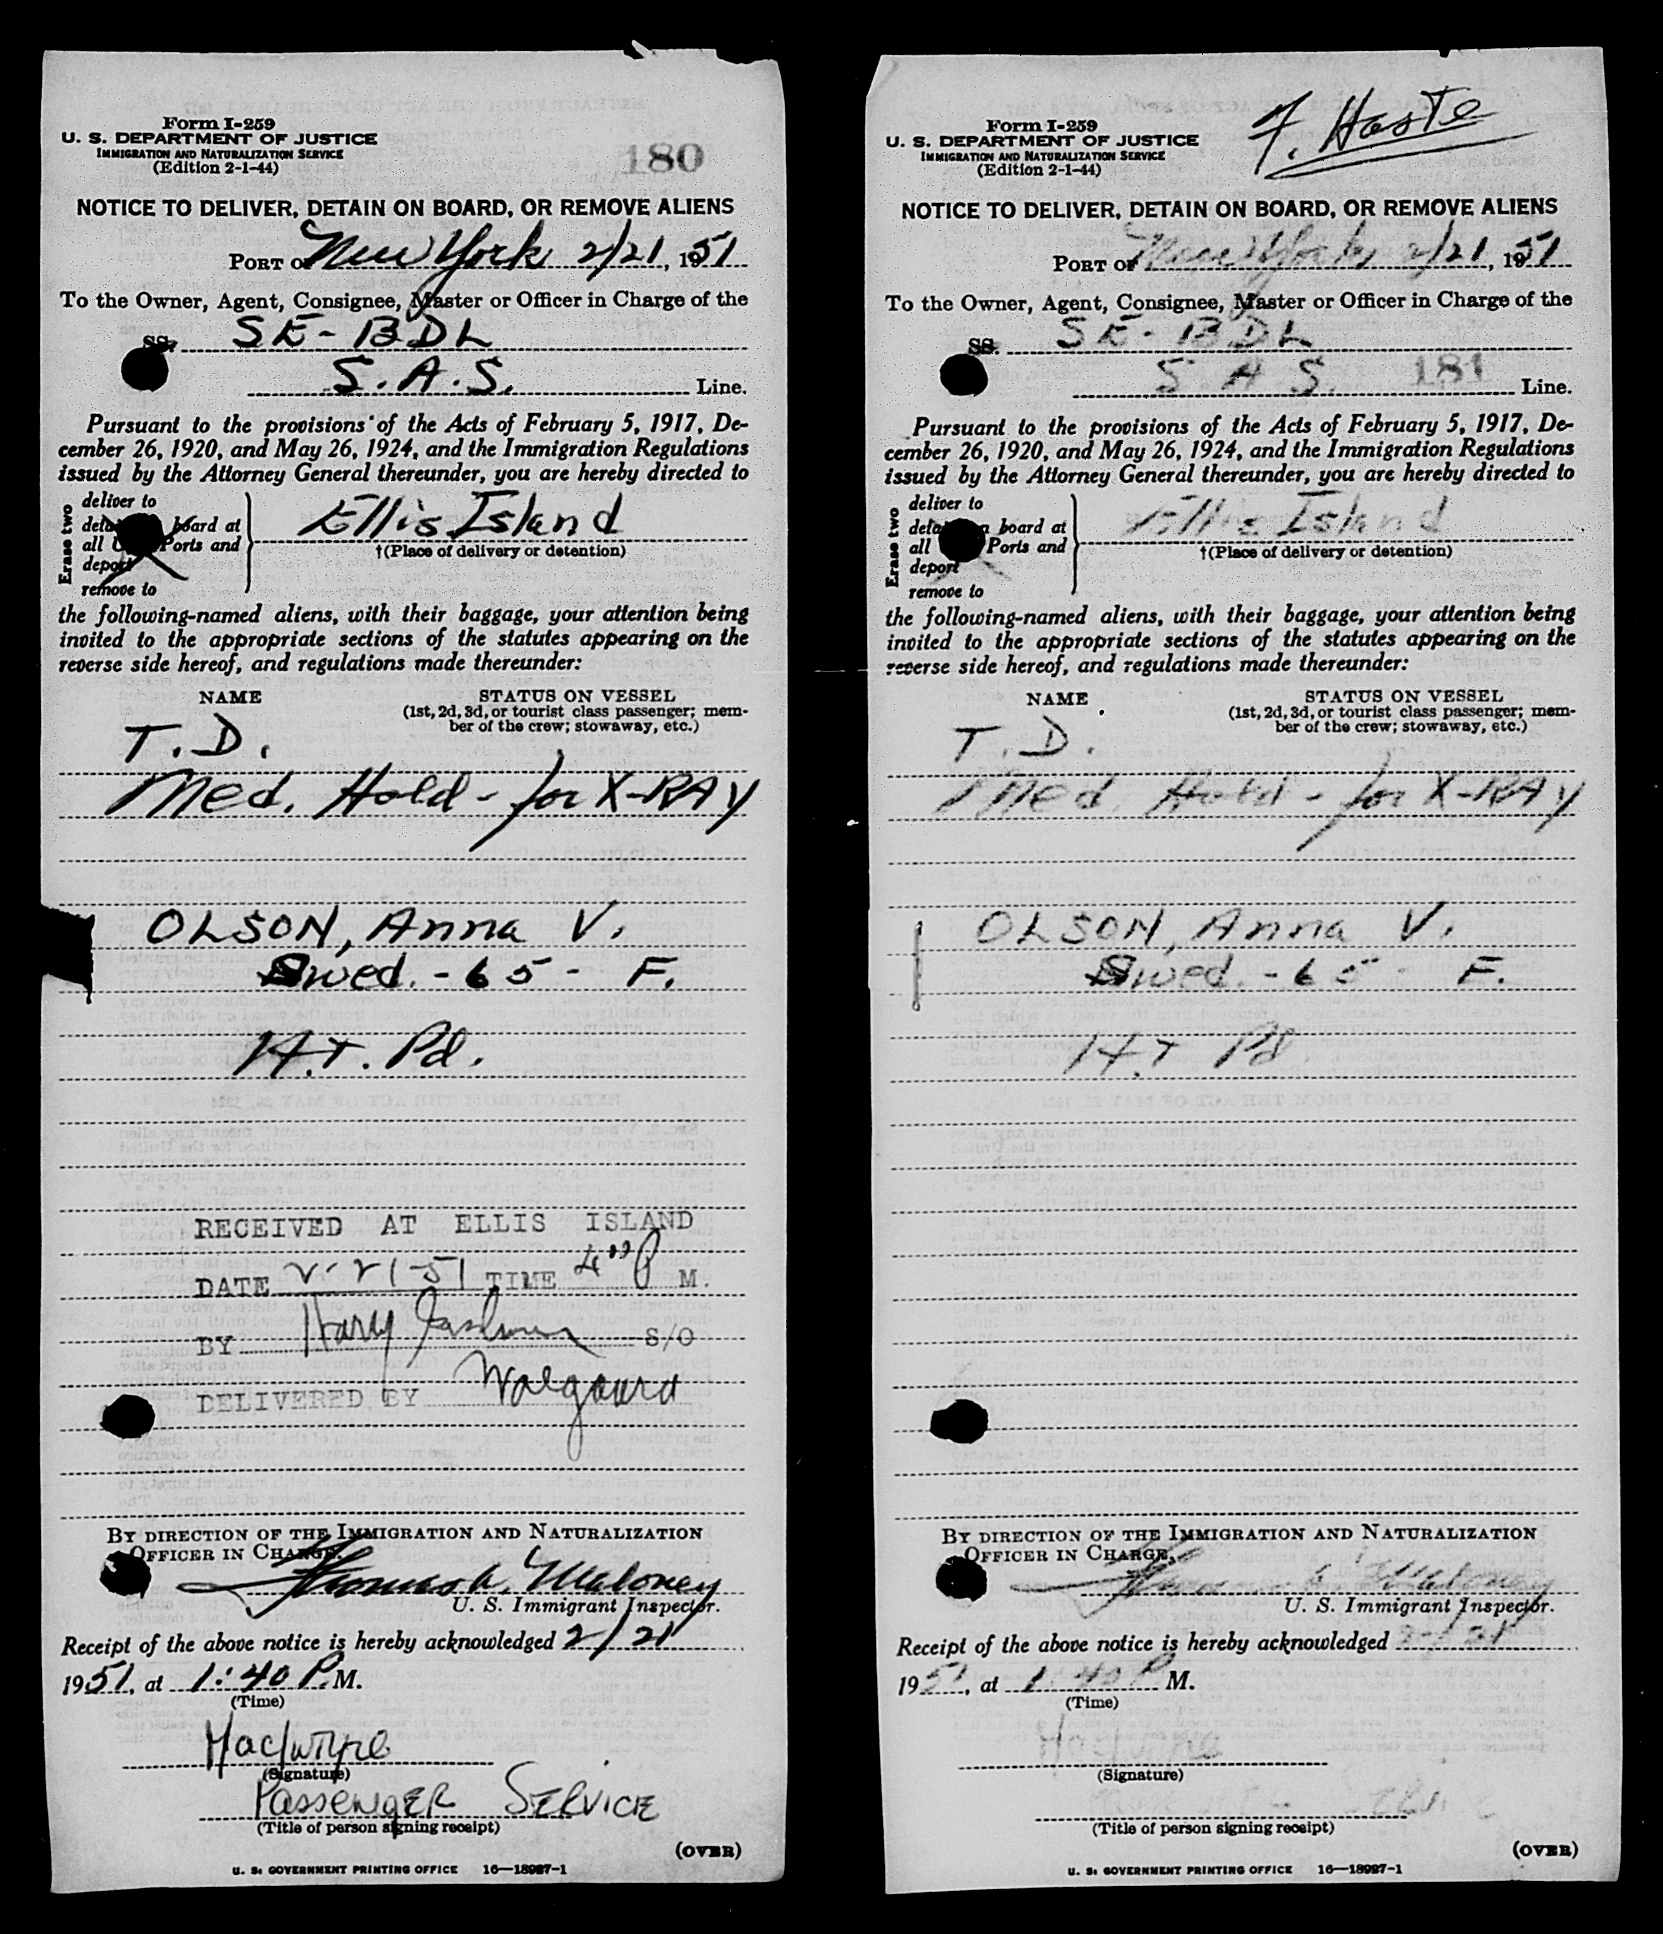 Form I-259
U. S. DEPARTMENT OF JUSTICE
IMMIGRATION AND NATURALIZATION SERVICE
(Edition 2-1-44)
180
NOTICE TO DELIVER, DETAIN ON BOARD, OR REMOVE ALIENS
PORT OF New York 2/21, 1951
To the Owner, Agent, Consignee, Master or Officer in Charge of the
SS. SE-BDL
S.A.S. Line.
Pursuant to the provisions of the Acts of February 5, 1917, De-
cember 26, 1920, and May 26, 1924, and the Immigration Regulations
issued by the Attorney General thereunder, you are hereby directed to
Erase two
deliver to
board at
all Ports and
deport
remove to
Ellis Island
†(Place of delivery or detention)
the following-named aliens, with their baggage, your attention being
invited to the appropriate sections of the statutes appearing on the
reverse side hereof, and regulations made thereunder:
NAME STATUS ON VESSEL
(1st, 2d, 3d, or tourist class passenger; mem-
ber of the crew; stowaway, etc.)
T.D.
Med. Hold - for X-RAY
OLSON, Anna V.
Swed. - 65 - F.
H.T. Pd.
RECEIVED AT ELLIS ISLAND
DATE 2-21-51 TIME 4 00 P M.
BY Harry S/O
DELIVERED BY
BY DIRECTION OF THE IMMIGRATION AND NATURALIZATION
OFFICER IN CHARGE.
Thomas A. Maloney
U. S. Immigrant Inspector.
Receipt of the above notice is hereby acknowledged 2/21
1951, at 1:40 P.M.
(Time)
(Signature)
PASSENGER SERVICE
(Title of person signing receipt)
(OVER)
U. S. GOVERNMENT PRINTING OFFICE 16—18987-1
Form I-259
U. S. DEPARTMENT OF JUSTICE
IMMIGRATION AND NATURALIZATION SERVICE
(Edition 2-1-44)
F. Haste
NOTICE TO DELIVER, DETAIN ON BOARD, OR REMOVE ALIENS
PORT OF New York 2/21, 1951
To the Owner, Agent, Consignee, Master or Officer in Charge of the
SS. SE-BDL
S A S. 181 Line.
Pursuant to the provisions of the Acts of February 5, 1917, De-
cember 26, 1920, and May 26, 1924, and the Immigration Regulations
issued by the Attorney General thereunder, you are hereby directed to
Erase two
deliver to
board at
all Ports and
deport
remove to
Ellis Island
†(Place of delivery or detention)
the following-named aliens, with their baggage, your attention being
invited to the appropriate sections of the statutes appearing on the
reverse side hereof, and regulations made thereunder:
NAME STATUS ON VESSEL
(1st, 2d, 3d, or tourist class passenger; mem-
ber of the crew; stowaway, etc.)
T.D.
Med. Hold - for X-RAY
OLSON, Anna V.
Swed. - 65 - F.
H.T Pd
BY DIRECTION OF THE IMMIGRATION AND NATURALIZATION
OFFICER IN CHARGE.
Thomas A. Maloney
U. S. Immigrant Inspector.
Receipt of the above notice is hereby acknowledged 2/21
1951, at 1:40 P M.
(Time)
(Signature)
(Title of person signing receipt)
(OVER)
U. S. GOVERNMENT PRINTING OFFICE 16—18987-1